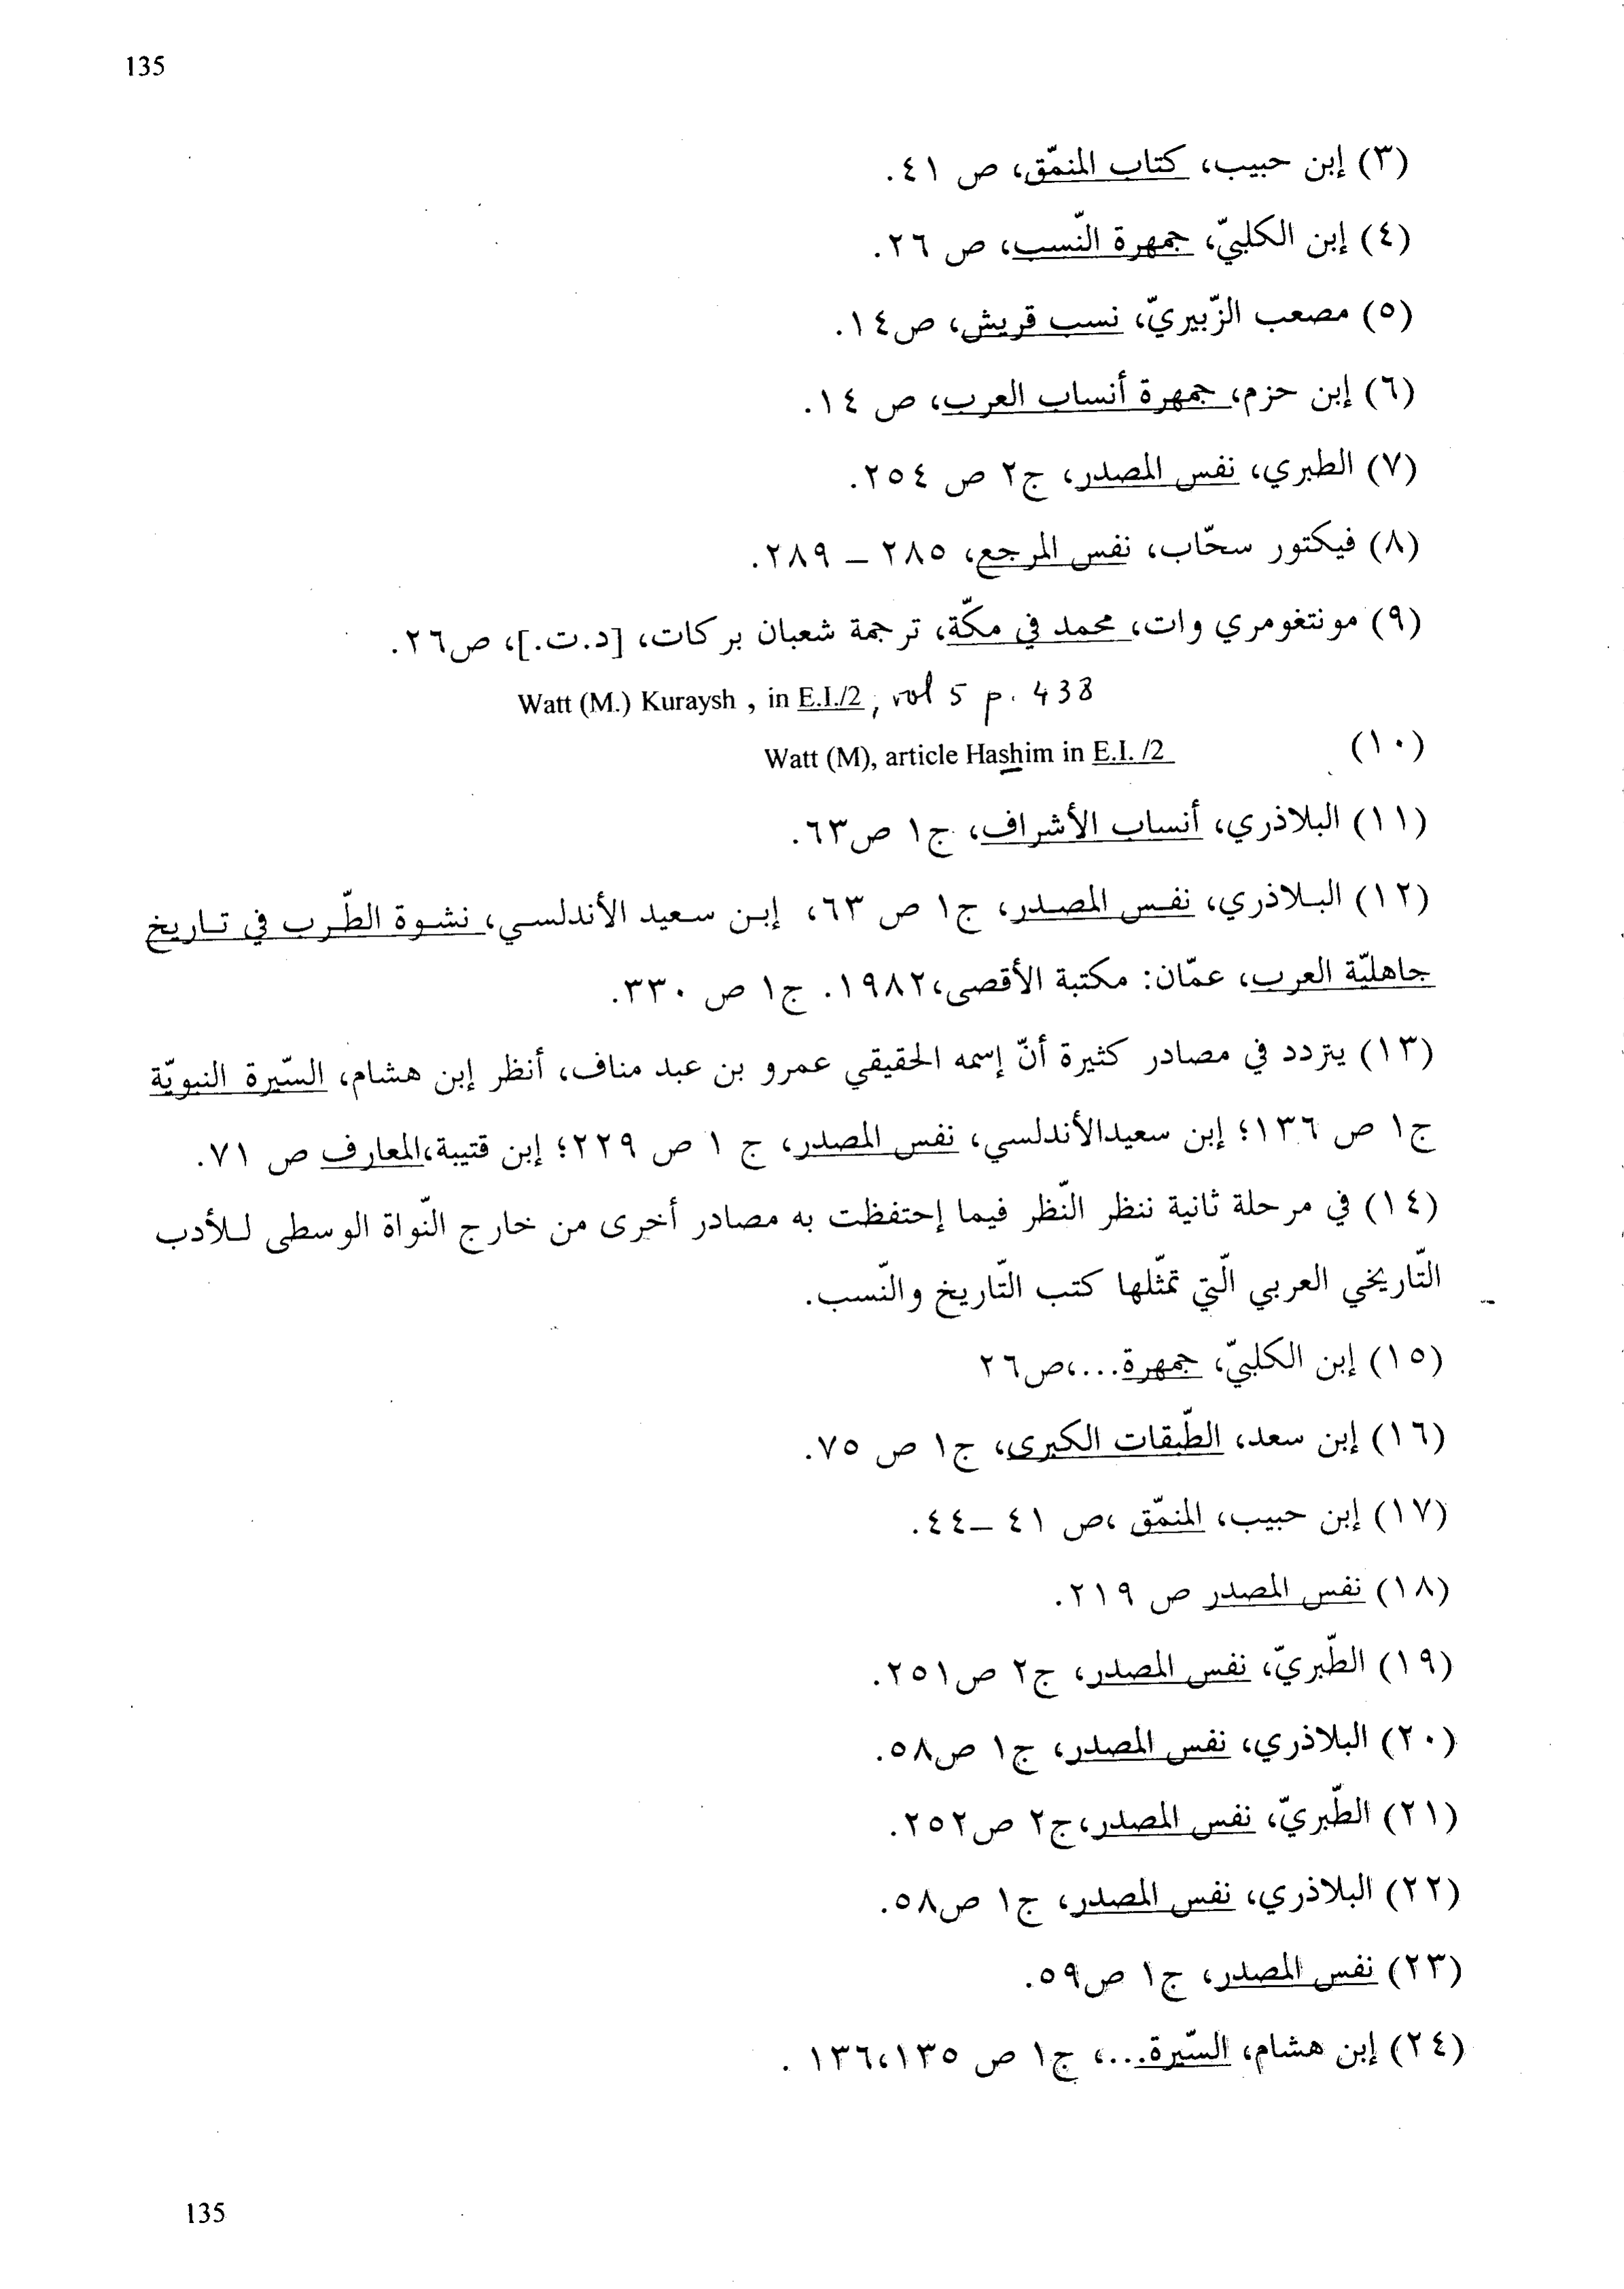 135
(٣) إبن حبيب، كتاب المنمّق، ص ٤١.
(٤) إبن الكلبيّ، جمهرة النّسب، ص ٢٦.
(٥) مصعب الزّبيريّ، نسب قريش، ص١٤.
(٦) إبن حزم، جمهرة أنساب العرب، ص ١٤.
(٧) الطبري، نفس المصدر، ج٢ ص ٢٥٤.
(٨) فيكتور سحّاب، نفس المرجع، ٢٨٥ – ٢٨٩.
(٩) مونتغومري وات، محمد في مكّة، ترجمة شعبان بركات، [د.ت.]، ص٢٦.
Watt (M.) Kuraysh , in E.I./2 , vol 5 p. 438
(١٠) Watt (M), article Hashim in E.I. /2
(١١) البلاذري، أنساب الأشراف، ج١ ص٦٣.
(١٢) البلاذري، نفس المصدر، ج١ ص ٦٣، إبن سعيد الأندلسي، نشوة الطّرب في تاريخ
جاهليّة العرب، عمّان: مكتبة الأقصى،١٩٨٢. ج١ ص ٣٣٠.
(١٣) يتردد في مصادر كثيرة أنّ إسمه الحقيقي عمرو بن عبد مناف، أنظر إبن هشام، السّيرة النبويّة
ج١ ص ١٣٦؛ إبن سعيدالأندلسي، نفس المصدر، ج ١ ص ٢٢٩؛ إبن قتيبة،المعارف ص ٧١.
(١٤) في مرحلة ثانية ننظر النّظر فيما إحتفظت به مصادر أخرى من خارج النّواة الوسطى للأدب
التّاريخي العربي الّتي تمثّلها كتب التّاريخ والنّسب.
(١٥) إبن الكلبيّ، جمهرة...،ص٢٦
(١٦) إبن سعد، الطّبقات الكبرى، ج١ ص ٧٥.
(١٧) إبن حبيب، المنمّق ،ص ٤١ –٤٤.
(١٨) نفس المصدر ص ٢١٩.
(١٩) الطّبريّ، نفس المصدر، ج٢ ص٢٥١.
(٢٠) البلاذري، نفس المصدر، ج١ ص٥٨.
(٢١) الطّبريّ، نفس المصدر،ج٢ ص٢٥٢.
(٢٢) البلاذري، نفس المصدر، ج١ ص٥٨.
(٢٣) نفس المصدر، ج١ ص٥٩.
(٢٤) إبن هشام، السّيرة...، ج١ ص ١٣٦،١٣٥ .
135